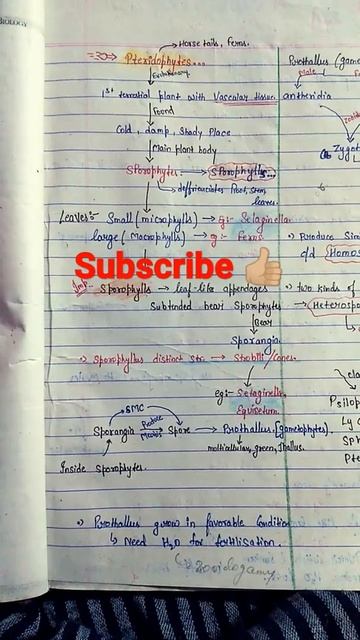 BIOLOGY
→ Horse tails, Ferns.
Pteridophytes...
Evolutionary
1st terrestial plant with Vascular tissue.
Found
Cold, damp, Shady Place
Main plant body
Sporophyte. → Sporophylls...
→ differenciates Root, Stem,
leaves.
Leaves:- Small (microphylls) → eg:- Selaginella
large (Macrophylls) → eg:- Ferns
Subscribe 👍
Imp. Sporophylls → leaf-like appendages
Subtended bear Sporophytes
Bear
Sporangia.
Sporophyllus distinct str. → Strobili/Cones.
eg:- Selaginella
Equisetum.
SMC
Sporangia Meiosis Spore → Prothallus. [gametophytes].
multicellular, green, Thallus.
Inside Sporophytes.
Prothallus grow in favorable Condition
↳ Need H2O for fertilisation.
↳ Zooidogamy
Prothallus (game
Male
antheridia
Zygot
• Produce Simi
c/d Homos
• two kinds of
→ Heterospo
cla
Psilop
Ly
Sph
Pte